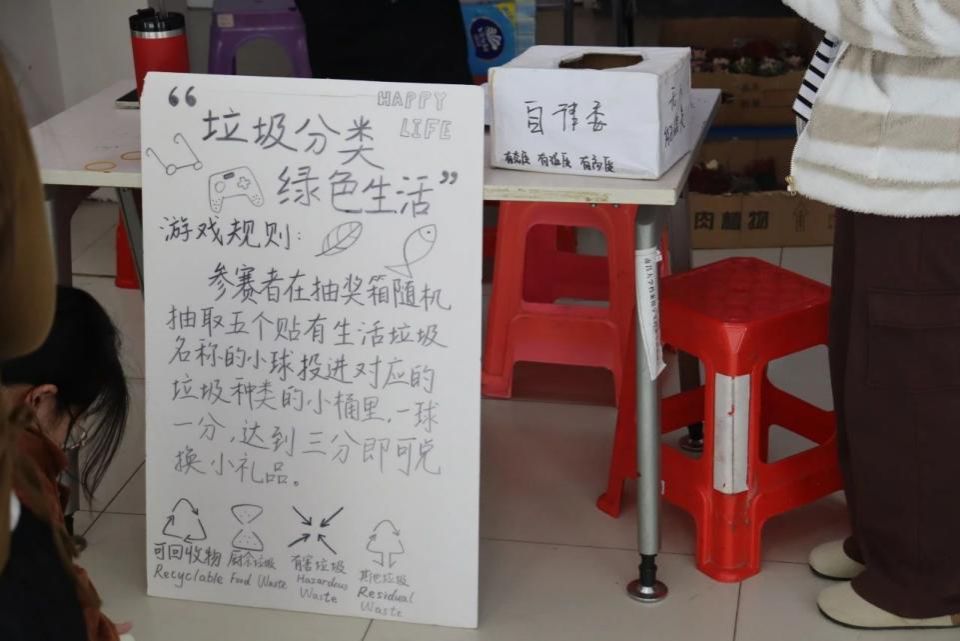 “垃圾分类
HAPPY
LIFE
绿色生活”
游戏规则:
参赛者在抽奖箱随机
抽取五个贴有生活垃圾
名称的小球投进对应的
垃圾种类的小桶里,一球
一分,达到三分即可兑
换小礼品。
可回收物
Recyclable
厨余垃圾
Food Waste
有害垃圾
Hazardous
Waste
其他垃圾
Residual
Waste
自律委
肉植物